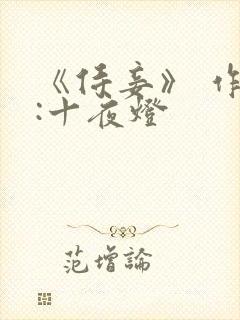 《侍妾》 作
:十夜燈
范增論